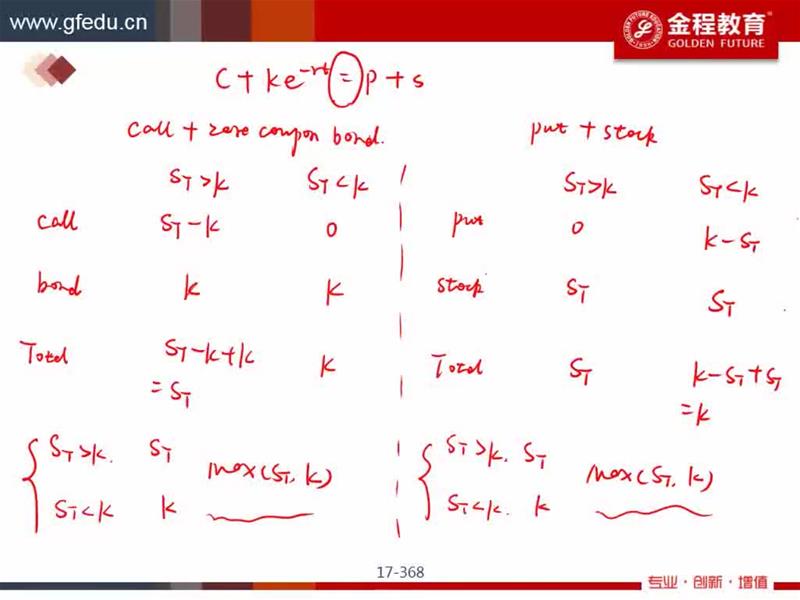 www.gfedu.cn
金程教育
GOLDEN FUTURE
C + Ke^-rt = P + S
call + zero coupon bond.
put + stock
S_T > K S_T < K
S_T > K S_T < K
call S_T - K 0
put 0 K - S_T
bond K K
stock S_T S_T
Total S_T - K + K K
= S_T
Total S_T K - S_T + S_T
= K
S_T > K. S_T
S_T < K K
max(S_T, K)
S_T > K. S_T
S_T < K. K
Max(S_T, K)
17-368
专业·创新·增值